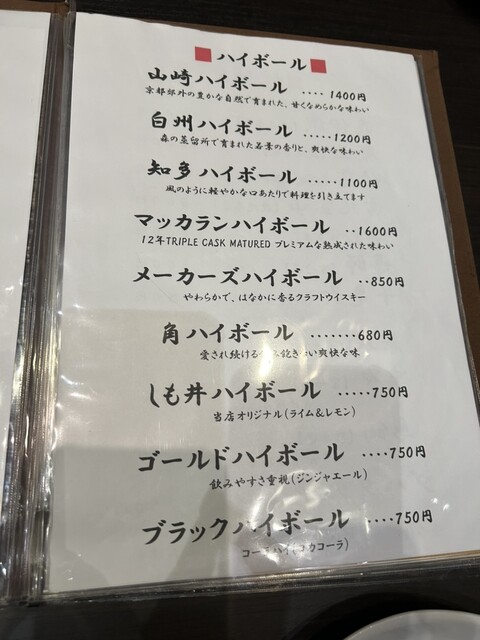 ■ ハイボール ■
山崎ハイボール ････ 1400円
京都郊外の豊かな自然で育まれた、甘くなめらかな味わい
白州ハイボール ･････1200円
森の蒸留所で育まれた若葉の香りと、爽快な味わい
知多ハイボール ･････1100円
風のように軽やかな口あたりで料理を引き立てます
マッカランハイボール ･･1600円
12年TRIPLE CASK MATURED プレミアムな熟成された味わい
メーカーズハイボール ･･850円
やわらかで、はなかに香るクラフトウイスキー
角ハイボール ･･･････680円
愛され続ける 飽きない爽快な味
しも井ハイボール ･････750円
当店オリジナル(ライム&レモン)
ゴールドハイボール ････750円
飲みやすさ重視(ジンジャエール)
ブラックハイボール ････750円
コークハイ(コカコーラ)